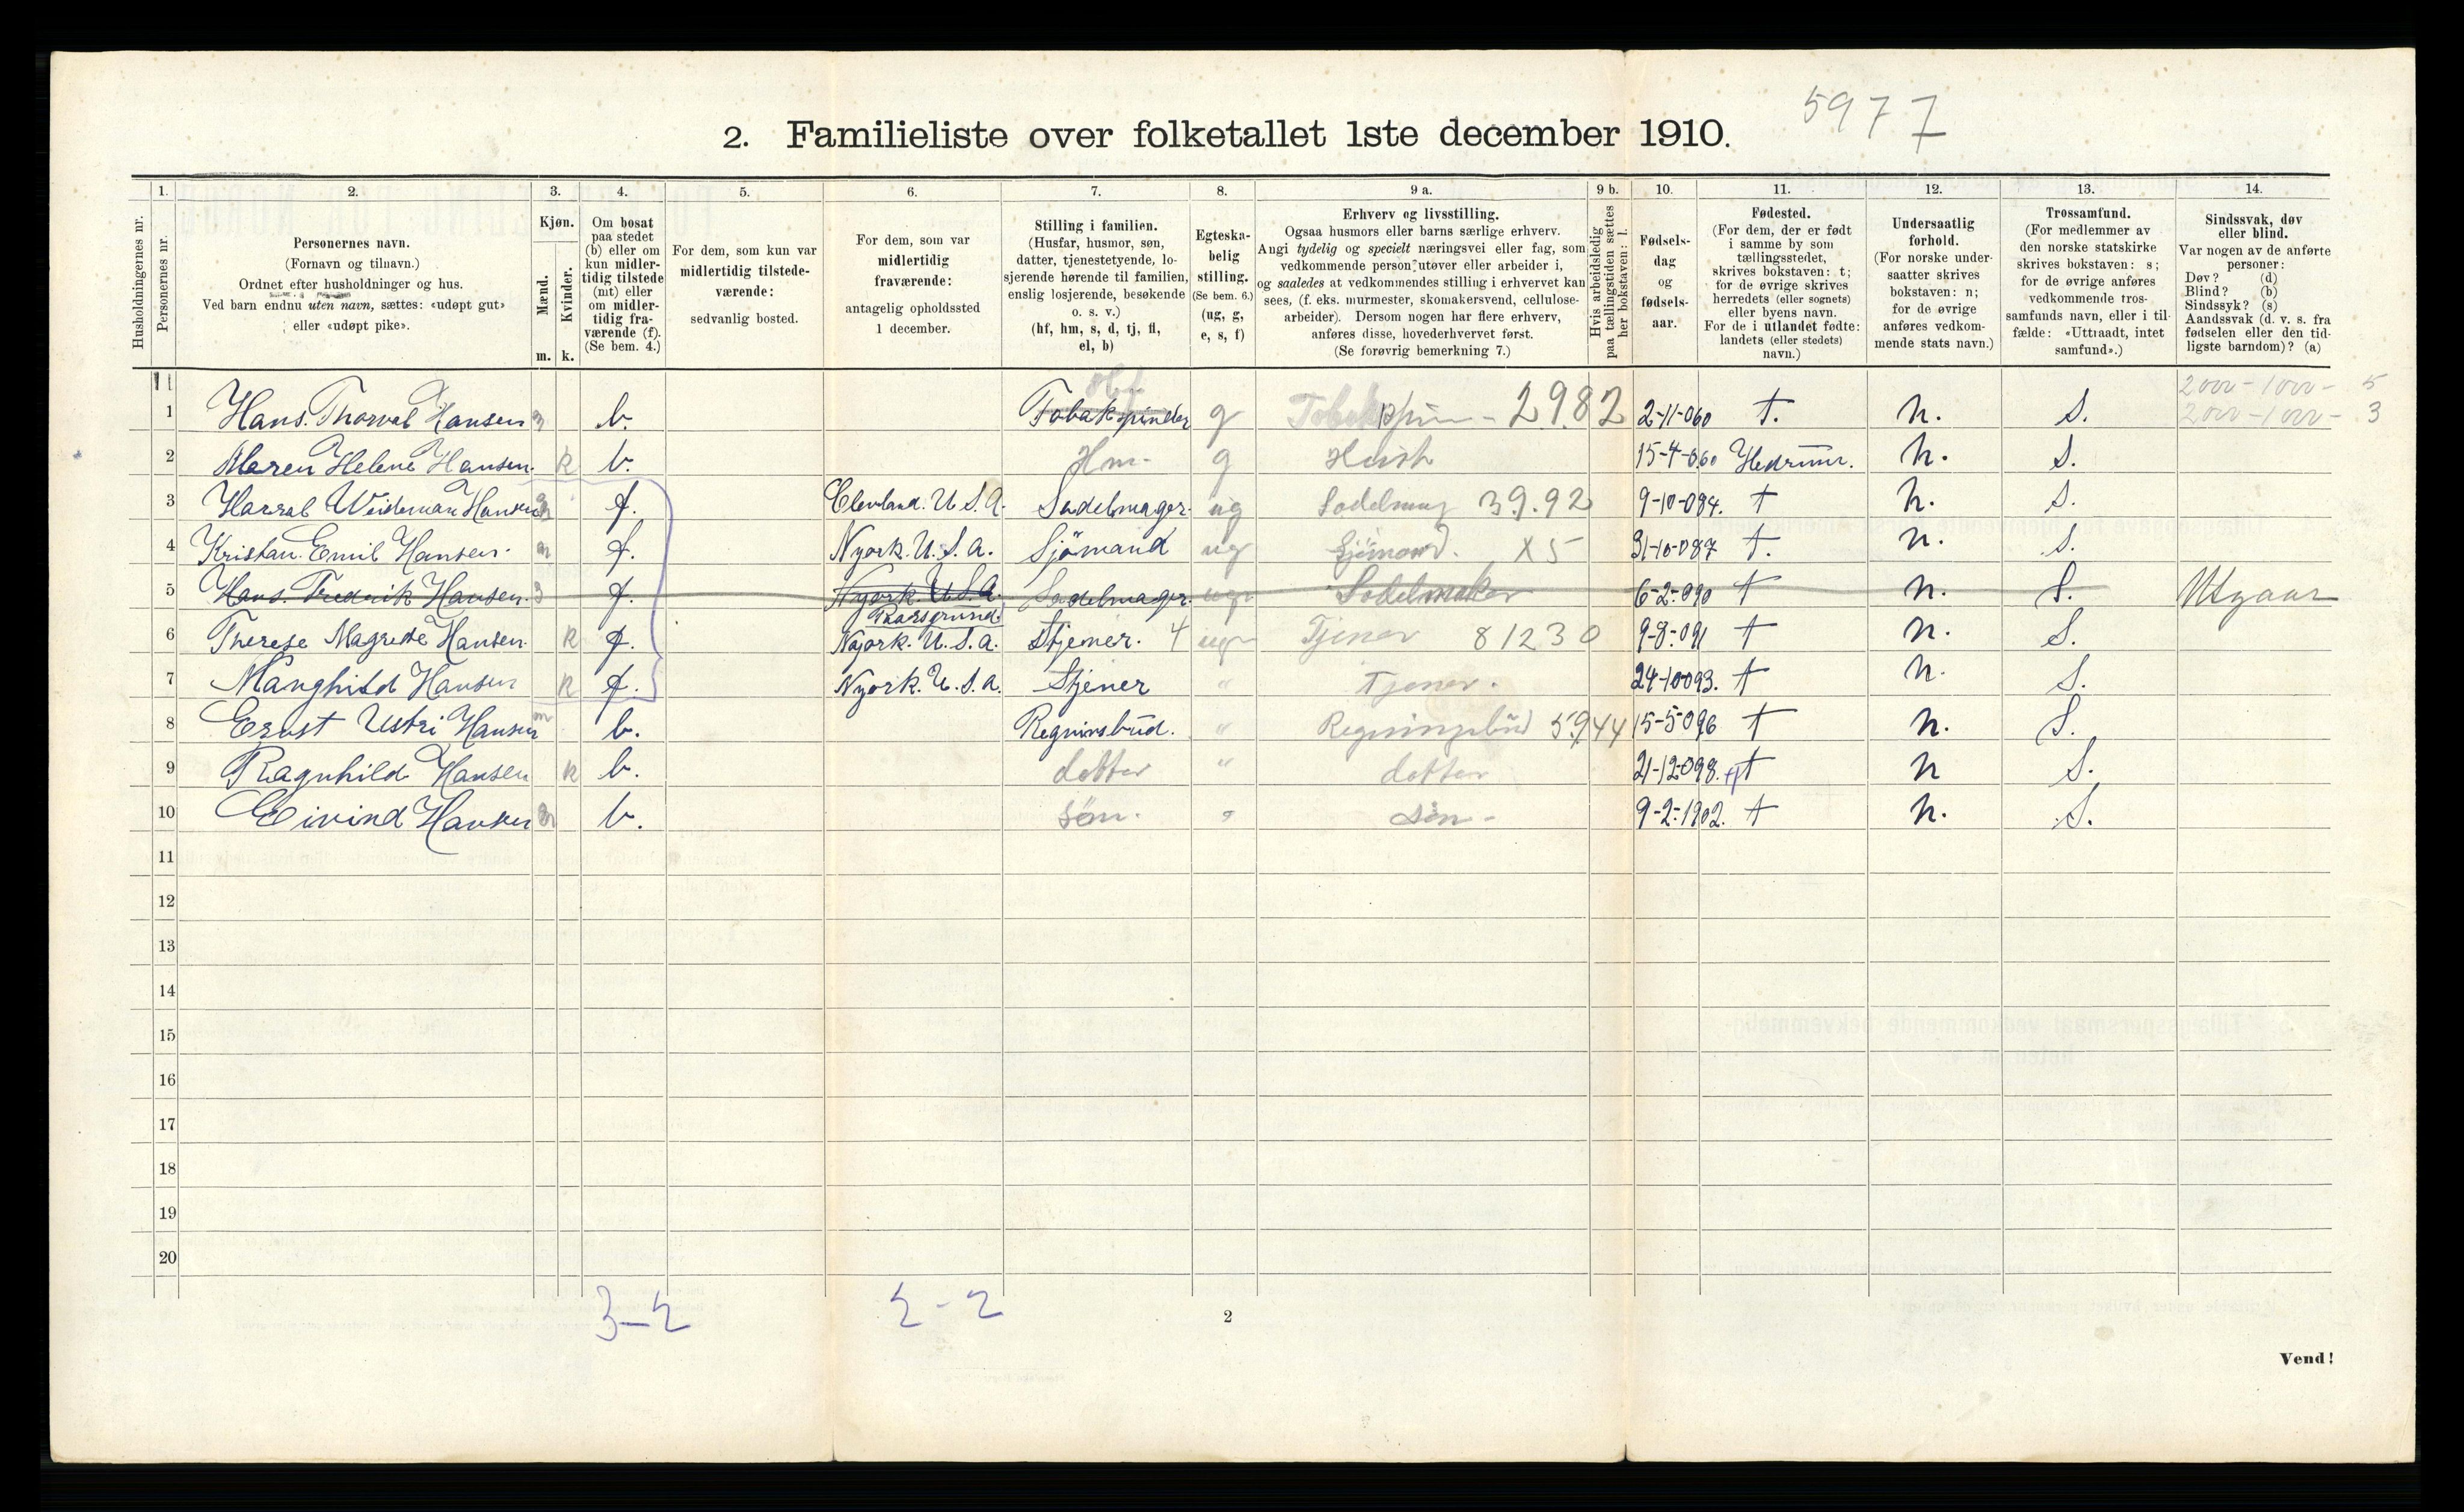 5977
2. Familieliste over folketallet 1ste december 1910.
1. 2. 3. 4. 5. 6. 7. 8. 9 a. 9 b. 10. 11. 12. 13. 14.
Husholdningernes nr.
Personernes nr.
Personernes navn.
(Fornavn og tilnavn.)
Ordnet efter husholdninger og hus.
Ved barn endnu uten navn, sættes: «udøpt gut»
eller «udøpt pike».
Kjøn.
Mænd.
Kvinder.
m. k.
Om bosat
paa stedet
(b) eller om
kun midler-
tidig tilstede
(mt) eller
om midler-
tidig fra-
værende (f).
(Se bem. 4.)
For dem, som kun var
midlertidig tilstede-
værende:
sedvanlig bosted.
For dem, som var
midlertidig
fraværende:
antagelig opholdssted
1 december.
Stilling i familien.
(Husfar, husmor, søn,
datter, tjenestetyende, lo-
sjerende hørende til familien,
enslig losjerende, besøkende
o. s. v.)
(hf, hm, s, d, tj, fl,
el, b)
Egteska-
belig
stilling.
(Se bem. 6.)
(ug, g,
e, s, f)
Erhverv og livsstilling.
Ogsaa husmors eller barns særlige erhverv.
Angi tydelig og specielt næringsvei eller fag, som
vedkommende person utøver eller arbeider i,
og saaledes at vedkommendes stilling i erhvervet kan
sees, (f. eks. murmester, skomakersvend, cellulose-
arbeider). Dersom nogen har flere erhverv,
anføres disse, hovederhvervet først.
(Se forøvrig bemerkning 7.)
Hvis arbeidsledig
paa tællingstiden sættes
her bokstaven: l.
Fødsels-
dag
og
fødsels-
aar.
Fødested.
(For dem, der er født
i samme by som
tællingsstedet,
skrives bokstaven: t;
for de øvrige skrives
herredets (eller sognets)
eller byens navn.
For de i utlandet fødte:
landets (eller stedets)
navn.)
Undersaatlig
forhold.
(For norske under-
saatter skrives
bokstaven: n;
for de øvrige
anføres vedkom-
mende stats navn.)
Trossamfund.
(For medlemmer av
den norske statskirke
skrives bokstaven: s;
for de øvrige anføres
vedkommende tros-
samfunds navn, eller i til-
fælde: «Uttraadt, intet
samfund».)
Sindssvak, døv
eller blind.
Var nogen av de anførte
personer:
Døv? (d)
Blind? (b)
Sindssyk? (s)
Aandssvak (d. v. s. fra
fødselen eller den tid-
ligste barndom)? (a)
Hf 2000-1000- 5
1 Hans. Thorval Hansen m b. Tobakspinder g Tobakspin- 2982 2-11-060 t. n. S. 2000-1000- 3
2 Maren Helene Hansen. k b. Hm- g Hush 15-4-060 Hedrum. n. S.
3 Harral Weideman Hansen m f. Clevland. U.S.A. Sadelmager. ug Sadelmag 39.92 9-10-084. t n. S.
4 Kristan. Emil Hansen. m f. Nyork. U.S.A. Sjömand ug Sjömand. X5 31-10-087 t. n. S.
5 Hans. Fredrik Hansen. m f. Nyork U.S.A. Sadelmager. ug Sadelmaker 6-2-090 t n. S. Utgaar
Porsgrund.
6 Therese Magrete Hansen. k f. Nyork. U.S.A. Stjener. 4 ug Tjener 81230 9-8-091 t n. S.
7 Manghild Hansen k f. Nyork. U.S.A. Stjener " Tjener. 24-10-093. t n. S.
8 Ernst Ustri Hansen m b. Regninsbud. " Regningsbud 5944 15-5-096 t n. S.
9 Ragnhild Hansen k b. datter " datter 21-12-098. t n S.
10 Eivind Hansen m b. søn. " søn- 9-2-1902. t n. S.
11
12
13
14
15
16
17
18
19
20
3-2 2-2
2
Vend!